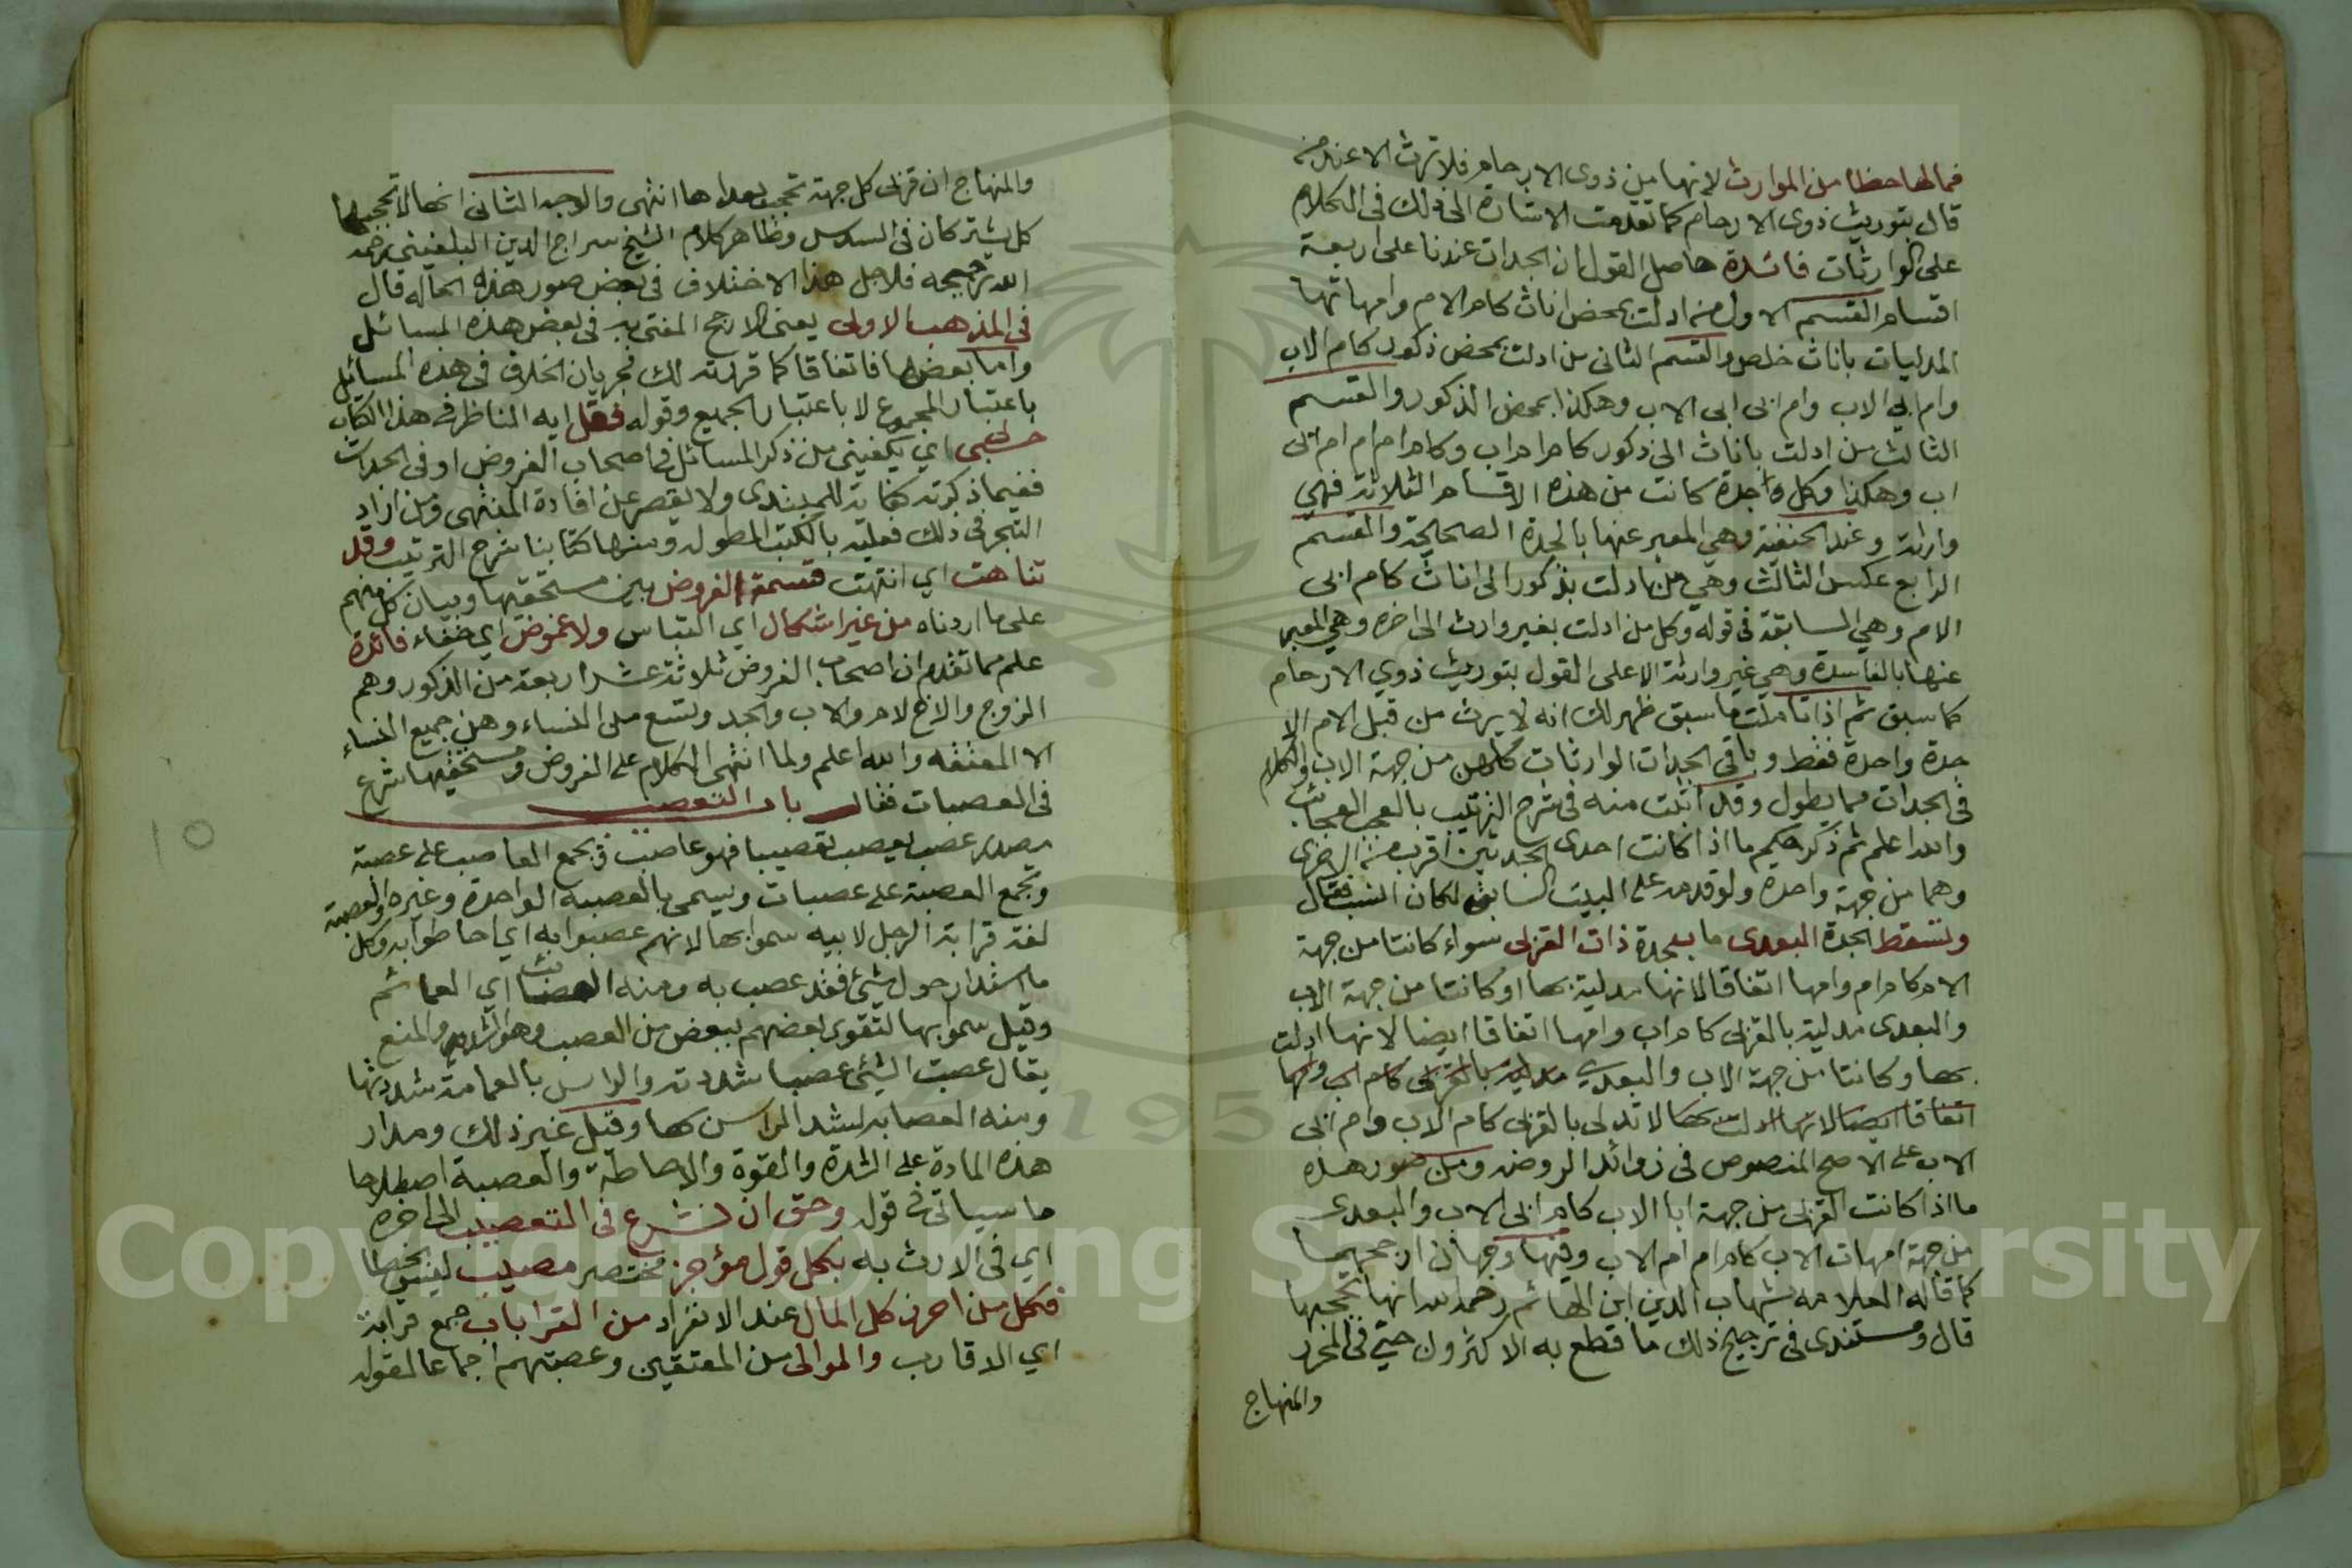 فما لها حظ من الموارث لانها من ذوي الارحام فلا ترث الا عند من
قال بتوريث ذوي الارحام كما تقدمت الاشارة الى ذلك في الكلام
على الوارثات فائدة حاصل القول ان الجدات عندنا على اربعة
اقسام القسم الاول من ادلت بمحض اناث كام الام وامهاتها
المدليات باناث خلص والقسم الثاني من ادلت بمحض ذكور كام الاب
وام ابي الاب وام ابي ابي الاب وهكذا بمحض الذكور والقسم
الثالث من ادلت باناث الى ذكور كام ام اب وكام ام ام ام ابي
اب وهكذا وكل واحدة كانت من هذه الاقسام الثلاثة فهي
وارثة وعند الحنفية وهي المعبر عنها بالجدة الصحيحة والقسم
الرابع عكس الثالث وهي من ادلت بذكور الى اناث كام ابي
الام وهي السابقة في قوله وكل من ادلت بغير وارث الى اخره وهي المعبر
عنها بالفاسدة وهي غير وارثة الا على القول بتوريث ذوي الارحام
كما سبق ثم اذا تاملت ما سبق ظهر لك انه لا يرث من قبل الام الا
جدة واحدة فقط وباقي الجدات الوارثات كلهن من جهة الاب والكلام
في الجدات مما يطول وقد اتيت منه في شرح الترتيب بالعجب العجاب
والله اعلم ثم ذكر حكم ما اذا كانت احدى الجدتين اقرب من الاخرى
وهما من جهة واحدة ولو قدمه على البيت السابق لكان انسب فقال
وتسقط الجدة البعدى ما بـجدة ذات القربى سواء كانتا من جهة
الام كام ام وامها اتفاقا لانها مدلية بها او كانتا من جهة الاب
والبعدى مدلية بالقربى كام اب وامها اتفاقا ايضا لانها ادلت
بها او كانتا من جهة الاب والبعدى مدلية بالقربى كام اب وامها
اتفاقا ايضا لانها ادلت بها لا تدلي بالقربى كام الاب وام ابي
الاب على الاصح المنصوص في زوائد الروضه ومن صور هذه
ما اذا كانت القربى من جهة ابا الاب كام ابي الاب والبعدى
من جهة امهات الاب كام ام ام الاب وفيها وجهان ارجحهما
كما قاله العلامه شهاب الدين ابن الهائم رحمه الله انها تحجبها
قال ومستندي في ترجيح ذلك ما قطع به الاكثرون حتى في المحرر
والمنهاج
والمنهاج ان قربى كل جهة تحجب بعداها انتهى والوجه الثاني انها لا تحجبها
كل يشتركان في السدس وظاهر كلام الشيخ سراج الدين البلقيني رحمه
الله ترجيحه فلاجل هذا الاختلاف في بعض صور هذه الحاله قال
في المذهب الاولى يعني الارجح المفتى به في بعض هذه المسائل
واما بعضها فاتفاقا كما قررته لك فجريان الخلاف في هذه المسائل
باعتبار المجموع لا باعتبار الجميع وقوله فقل ايه المناظر في هذا الكتاب
حسبي اي يكفيني من ذكر المسائل في اصحاب الفروض او في الجدات
ففيما ذكرته كفاية للمبتدي ولا يقصر عن افادة المنتهى ومن اراد
التبحر في ذلك فعليه بالكتب المطوله ومنها كتابنا شرح الترتيب وقد
تناهت اي انتهت قسمة الفروض بين مستحقيها وبيان كل منهم
على ما اردناه من غير اشكال اي التباس ولا غموض اي خفاء فائدة
علم مما تقدم ان اصحاب الفروض ثلاثة عشر اربعة من الذكور وهم
الزوج والاخ لام والاب والجد وتسع من النساء وهن جميع النساء
الا المعتقه والله اعلم ولما انتهى الكلام على الفروض ومستحقيها شرع
في العصبات فقال باب التعصيب
مصدر عصب يعصب تعصيبا فهو عاصب ويجمع العاصب على عصبة
وتجمع العصبة على عصبات ويسمى بالعصبه الواحدة وغيره والعصبة
لغة قرابة الرجل لابيه سموا بها لانهم عصبوا به اي احاطوا به وكل
ما استدار حول شيئ فقد عصب به ومنه العصائب اي العمائم
وقيل سموا بها لتقوى بعضهم ببعض من العصب وهو الشد والمنع
يقال عصبت الشيئ عصبا شددته والراس بالعمامة شددتها
ومنه العصابه لشد الراس بها وقيل غير ذلك ومدار
هذه المادة على الشدة والقوة والاحاطة والعصبة اصطلاحا
ما سياتي في قوله وحق ان نشرع في التعصيب الى اخره
اي في الارث به بكل قول مؤجز مختصر مصيب ليس بخطا
فكل من احرز كل المال عند الانفراد من القرابات جمع قرابة
اي الاقارب والموالي من المعتقين وعصبتهم اجماعا لقوله
١٥
Copyright © King Saud University
195